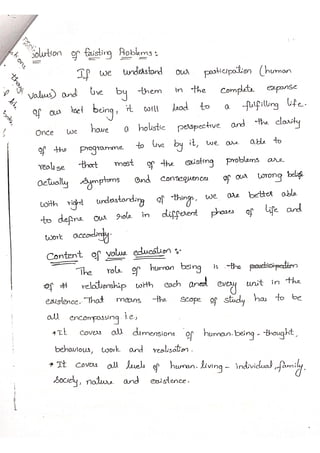 Solution of Existing Problems :
If we understand our participation (human
values) and live by them in the complete expanse
of our lief being, it will lead to a fulfilling life.
Once we have a holistic perspective and the clarity
of the programme to live by it, we are able to
realise that most of the existing problems are
actually symptoms and consequences of our wrong
with right undastanding of things, we are better able
to define our role in different phases of life and
work accordingly.
Content of value education :-
The role of human being is the participation
of relationship with each and every unit in the
existence. That means the scope of study has to be
all encompassing ie,
* It covers all dimensions of human being - thought,
behaviour, work and realisation.
* It covers all levels of human living - individual, family,
Society, nature and existence.